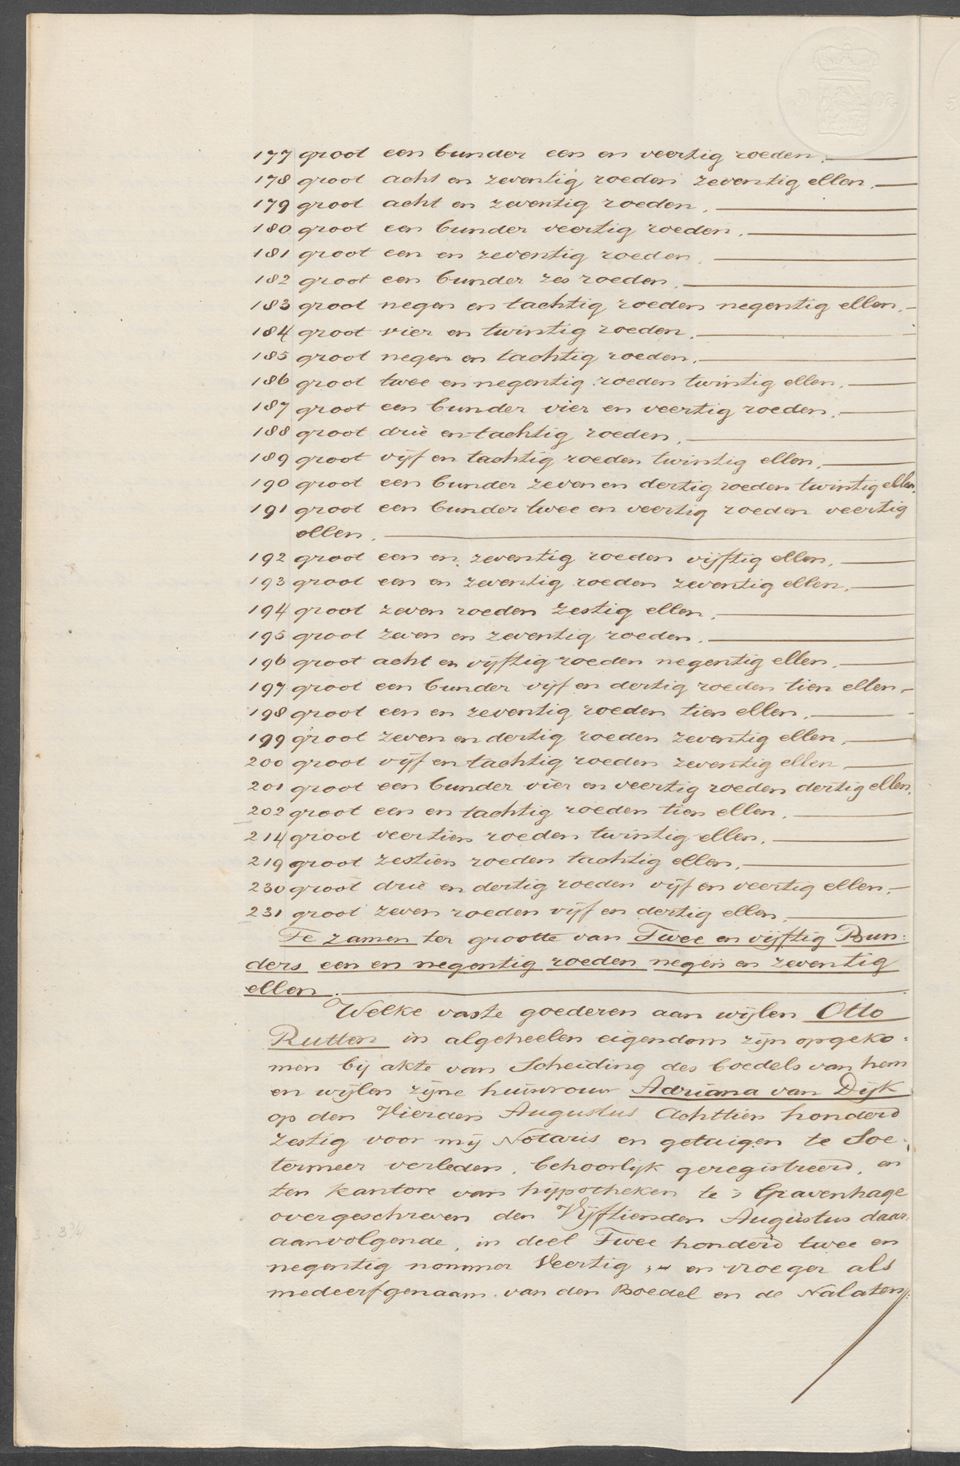 177 groot een bunder een en veertig roeden.
178 groot acht en zeventig roeden zeventig ellen.
179 groot acht en zeventig roeden.
180 groot een bunder veertig roeden.
181 groot een en zeventig roeden.
182 groot een bunder zes roeden.
183 groot negen en tachtig roeden negentig ellen.
184 groot vier en twintig roeden.
185 groot negen en tachtig roeden.
186 groot twee en negentig roeden twintig ellen.
187 groot een bunder vier en veertig roeden.
188 groot drie en tachtig roeden.
189 groot vijf en tachtig roeden twintig ellen.
190 groot een bunder zeven en dertig roeden twintig ellen.
191 groot een bunder twee en veertig roeden veertig
ellen.
192 groot een en zeventig roeden vijftig ellen.
193 groot een en zeventig roeden zeventig ellen.
194 groot zeven roeden zestig ellen.
195 groot zeven en zeventig roeden.
196 groot acht en vijftig roeden negentig ellen.
197 groot een bunder vijf en dertig roeden tien ellen.
198 groot een en zeventig roeden tien ellen.
199 groot zeven en dertig roeden zeventig ellen.
200 groot vijf en tachtig roeden zeventig ellen
201 groot een bunder vier en veertig roeden dertig ellen.
202 groot een en tachtig roeden tien ellen.
214 groot veertien roeden twintig ellen.
219 groot zestien roeden tachtig ellen.
230 groot drie en dertig roeden vijf en veertig ellen.
231 groot zeven roeden vijf en dertig ellen.
Te zamen ter grootte van Twee en vijftig Bun-
ders een en negentig roeden negen en zeventig
ellen.
Welke vaste goederen aan wijlen Otto
Rutten in algeheelen eigendom zijn opgeko-
men bij akte van Scheiding des boedels van hem
en wijlen zijne huisvrouw Adriana van Dijk
op den Vierden Augustus Achttien honderd
zestig voor mij Notaris en getuigen te Soe-
termeer verleden, behoorlijk geregistreerd, en
ten kantore van hypotheken te 's Gravenhage
overgeschreven den Vijftienden Augustus daar
aanvolgende, in deel Twee honderd twee en
negentig nommer Veertig ;~ en vroeger als
medeerfgenaam van den Boedel en de Nalaten-